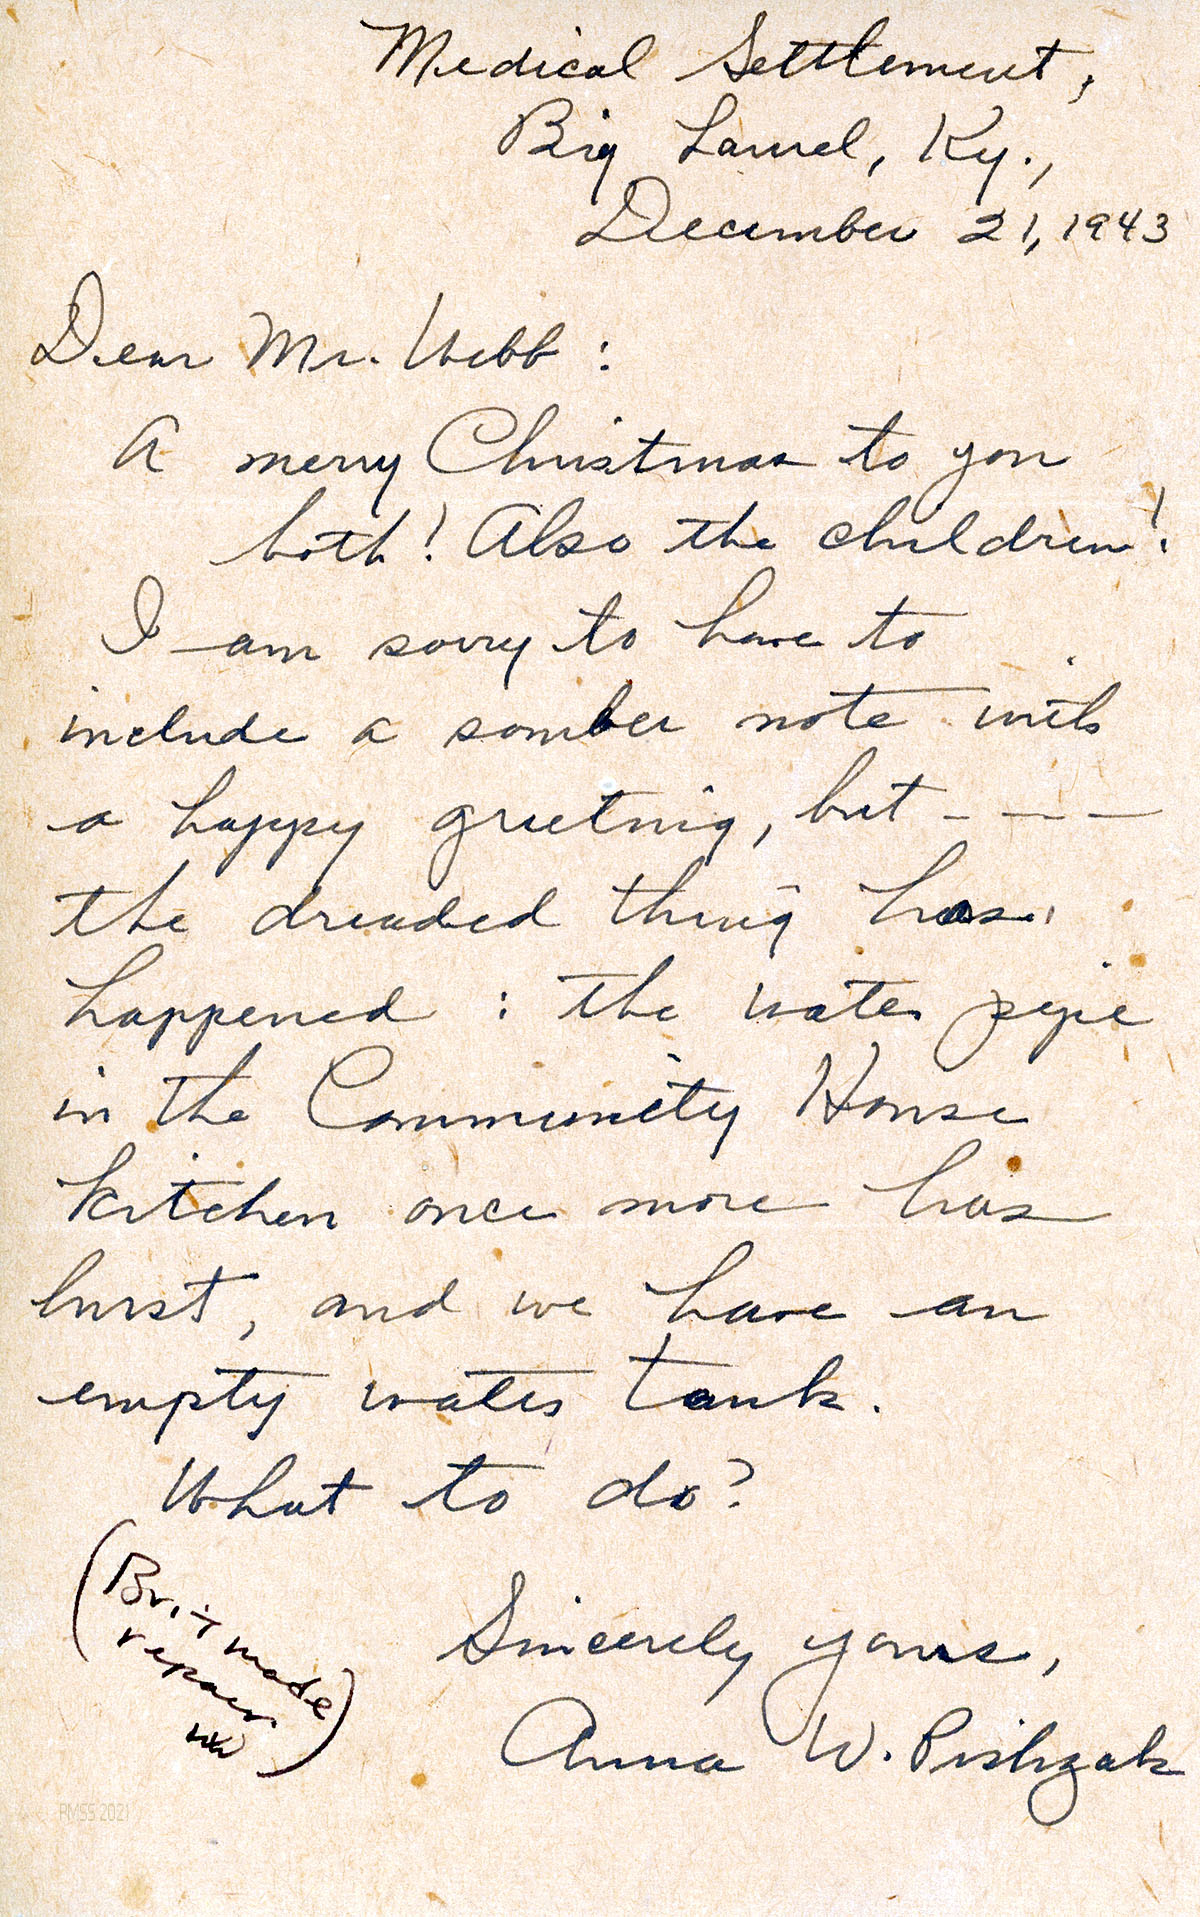 Medical Settlement,
Big Laurel, Ky.,
December 21, 1943
Dear Mr. Webb:
A merry Christmas to you
both! Also the children!
I am sorry to have to
include a somber note with
a happy greeting, but - - - -
the dreaded thing has
happened: the water pipe
in the Community House
kitchen once more has
burst, and we have an
empty water tank.
What to do?
(Brit made
repairs
Sincerely yours,
Anna W. Pishzak
RMSS 2021